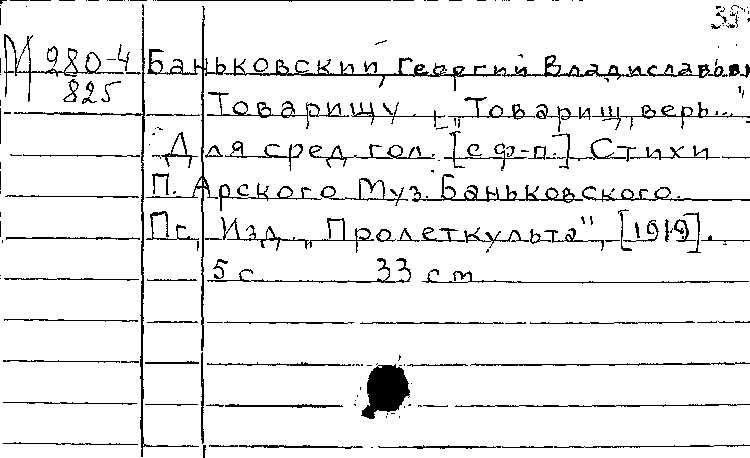 М 280-4 Баньковский, Георгий Владиславов
825 Товарищу. [„Товарищ, верь..."
Для сред. гол. [с ф-п.] Стихи
П. Арского Муз. Баньковского.
Пг., Изд. „Пролеткульта", [1919].
5 с. 33 см